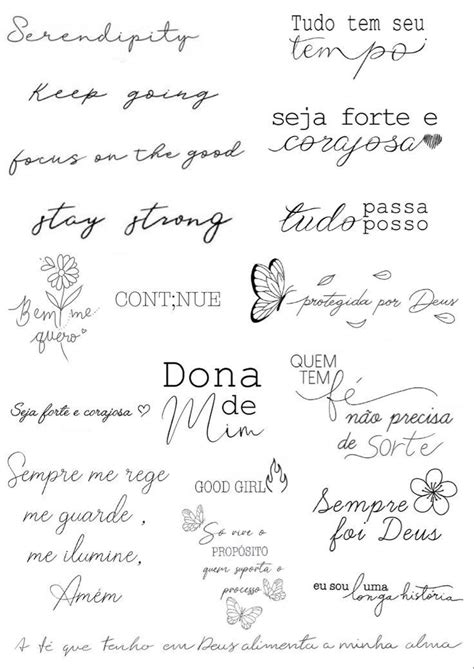 Serendipity
Tudo tem seu
tempo
Keep going
seja forte e
corajosa
focus on the good
stay strong
tudo passa
posso
Bem me
quero
CONT;NUE
protegida por Deus
Dona
de
Mim
QUEM
TEM
fé
não precisa
de sorte
Seja forte e corajosa
Sempre me rege
me guarde,
me ilumine,
Amém
GOOD GIRL
Só vive o
PROPÓSITO
quem suporta o
processo
Sempre
foi Deus
eu sou uma
longa história
A fé que tenho em Deus alimenta a minha alma